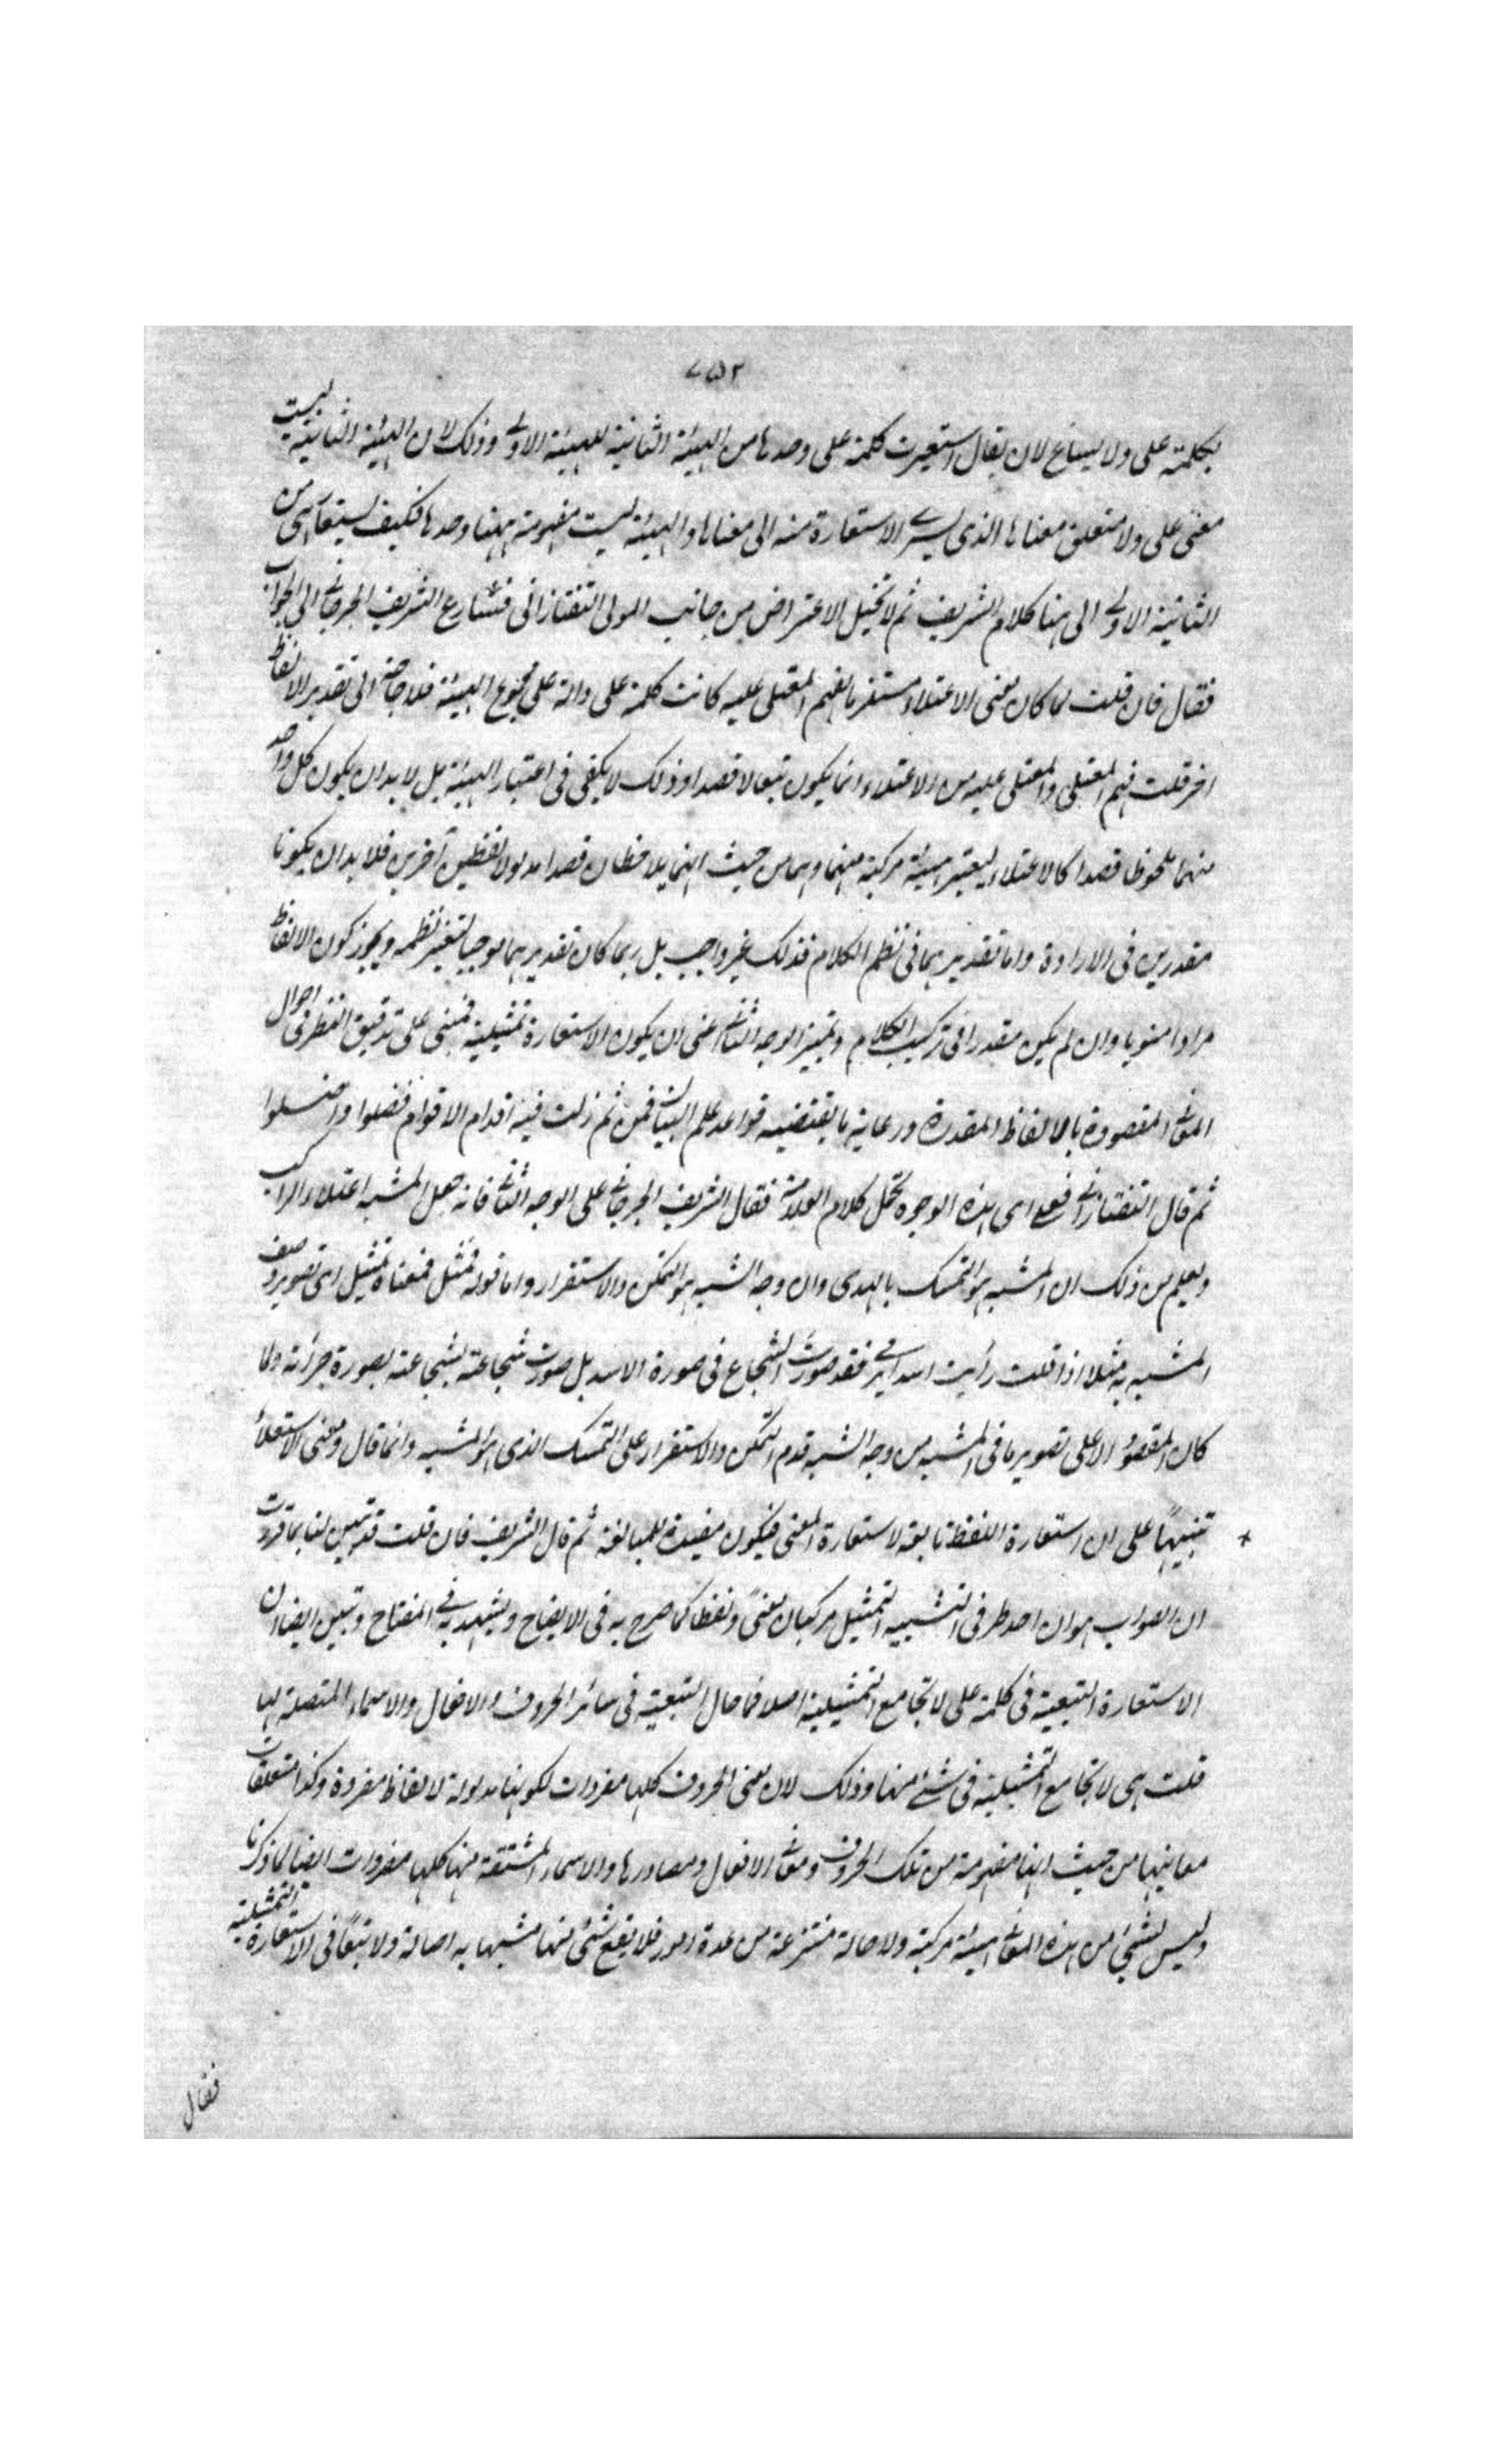 ٧٥٢
بكلمة على ولا يساغ لان يقال استعيرت كلمة على وحدها من الهيئة الثانية للهيئة الاولى وذلك لان الهيئة الثانية ليست
معنى على ولا متعلق معناها الذى يسرى الاستعارة منه الى معناها والهيئة ليست مفهومة ههنا وحدها فكيف يستعار هى من
الثانية الاولى الى هنا كلام الشريف ثم لا تخيل الاعتراض من جانب المولى التفتازانى فتسارع الشريف الجرجانى الى الجواب
فقال فان قلت لما كان معنى الاعتلاء مستلزما لفهم المعتلى عليه كانت كلمة على دالة على مجموع الهيئة فلا حاجة الى تقدير الالفاظ
اخر قلت فهم المعتلى والمعتلى عليه من الاعتلاء انما يكون تبعا لا قصدا وذلك لا يكفى فى اعتبار الهيئة بل لا بد ان يكون كل واحد
منهما ملحوظا قصدا كالاعتلاء ليعتبر هيئة مركبة منهما وهما من حيث انهما يلاحظان قصدا مدلولا لفظين آخرين فلا بد ان يكونا
مقدرين فى الارادة واما تقديرهما فى نظم الكلام فذلك غير واجب بل ربما كان تقديرهما موجبا لتغير نظمه ويجوز كون الالفاظ
مرادا منويا وان لم يكن مقدرا فى تركيب الكلام وتمييز الوجه الثانى اعنى ان يكون الاستعارة تمثيلية فمبنى على تدقيق النظر فى احوال
المعانى المقصودة بالالفاظ المقدرة ورعاية ما يقتضيه قواعد علم البيان فمن ثم زلت فيه اقدام الاقوام فضلوا واضلوا
ثم قال التفتازانى فعلى اى هذه الوجوه يحمل كلام العلامة فقال الشريف الجرجانى على الوجه الثانى فانه جعل المشبه اعتلاء الراكب
ويعلم من ذلك ان المشبه هو التمسك بالهدى وان وجه الشبه هو التمكن والاستقرار واما قوله مثل فمعناه تمثيل اى تصوير وصف
المشبه به مثلا اذا قلت رأيت اسدا يرمى فقد صورت الشجاع فى صورة الاسد بل صورت شجاعته بشجاعته بصورة جرأته ولما
كان المقصود الاعلى تصوير ما فى المشبه من وجه الشبه قدم التمكن والاستقرار على التمسك الذى هو المشبه وانما قال ومعنى الاستعلاء
تنبيهاً على ان استعارة اللفظ تابعة لاستعارة المعنى فيكون مفيدة للمبالغة ثم قال الشريف فان قلت قد تبين لنا بما قررت
ان الصواب هو ان احد طرفى التشبيه التمثيل مركبان معنىً ولفظا كما صرح به فى الايضاح ويشهد به فى المفتاح وتبين ايضا ان
الاستعارة التبعية فى كلمة على لا تجامع التمثيلية اصلا فما حال التبعية فى سائر الحروف والافعال والاسماء المتصلة بها
قلت هى لا تجامع التمثيلية فى شئ منها وذلك لان معنى الحروف كلها مفردات لكونها مدلولة لالفاظ مفردة وكذا متعلقات
معانيها من حيث انها مفهومة من تلك الحروف ومعانى الافعال ومصادرها والاسماء المشتقة منها كلها مفردات ايضا لما ذكرنا
وليس لشئ من هذه المعانى هيئة مركبة ولا حالة منتزعة من عدة امور فلا يقع شئ منها مشبها به اصالة ولا تبعاً فى الاستعارة التمثيلية
فقال